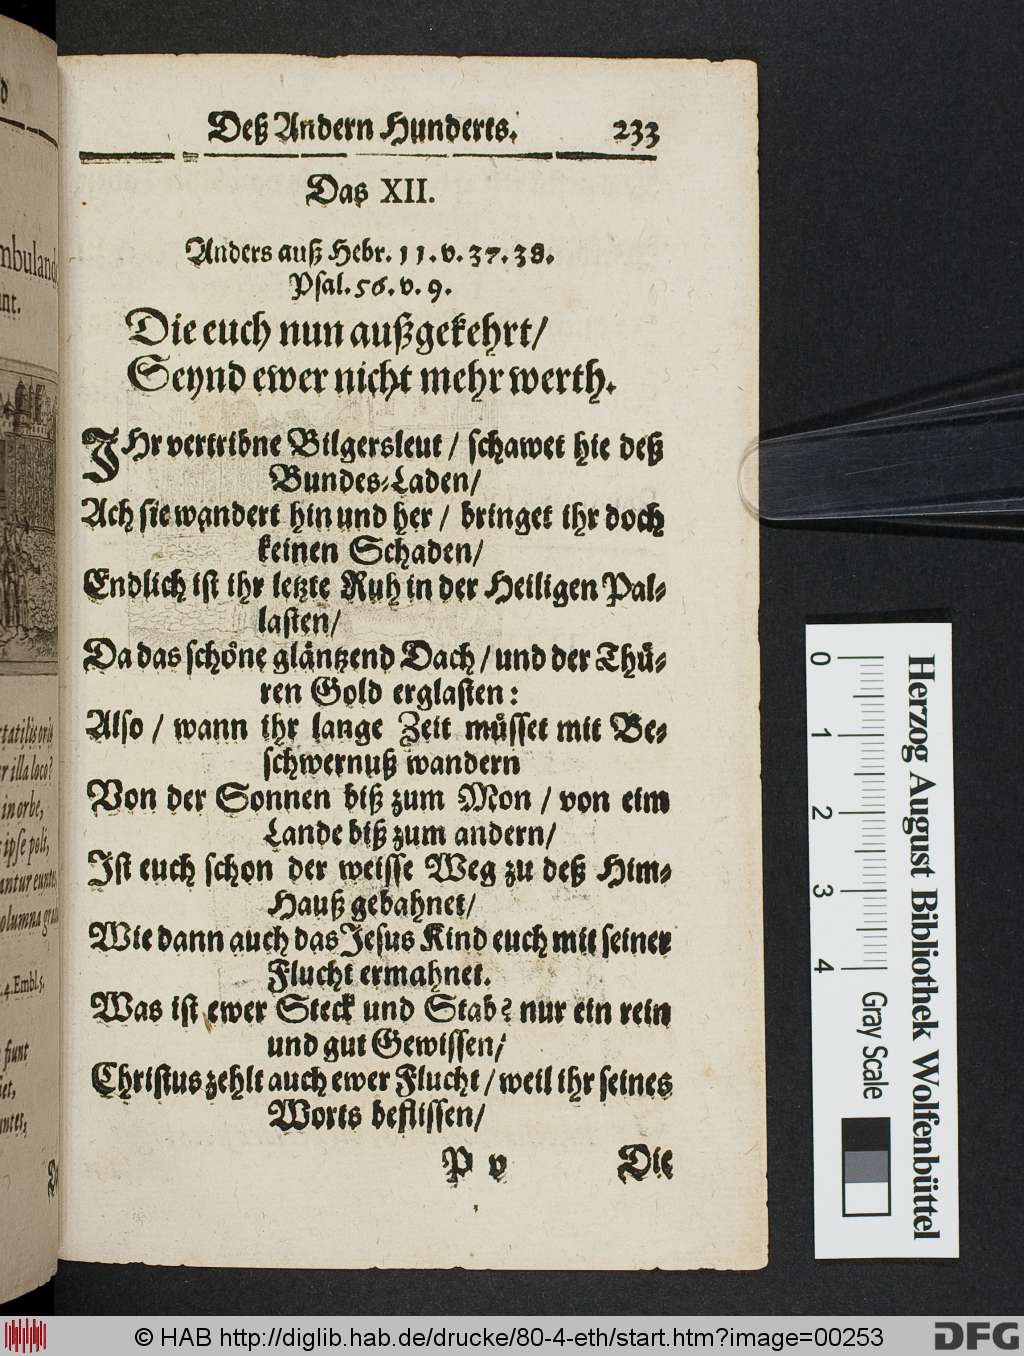 Deß Andern Hunderts. 233
Das XII.
Anders auß Hebr. 11. v. 37. 38.
Psal. 56. v. 9.
Die euch nun außgekehrt/
Seynd ewer nicht mehr werth.
IHr vertribne Bilgersleut / schawet hie deß
Bundes-Laden/
Ach sie wandert hin und her / bringet ihr doch
keinen Schaden/
Endlich ist ihr letzte Ruh in der Heiligen Pal-
lasten/
Da das schöne gläntzend Dach / und der Thü-
ren Gold erglasten:
Also / wann ihr lange Zeit müsset mit Be-
schwernuß wandern
Von der Sonnen biß zum Mon / von eim
Lande biß zum andern/
Ist euch schon der weisse Weg zu deß Him-
Hauß gebahnet/
Wie dann auch das Jesus Kind euch mit seiner
Flucht ermahnet.
Was ist ewer Steck und Stab? nur ein rein
und gut Gewissen/
Christus zehlt auch ewer Flucht / weil ihr seines
Worts beflissen/
P v Die
mbuland
unt.
tatilis orb
r illa loco?
in orbe,
ipse poli,
antur eunte,
olumna gra
4. Embl 5.
fiunt
0 1 2 3 4
Gray Scale
Herzog August Bibliothek Wolfenbüttel
© HAB http://diglib.hab.de/drucke/80-4-eth/start.htm?image=00253
DFG